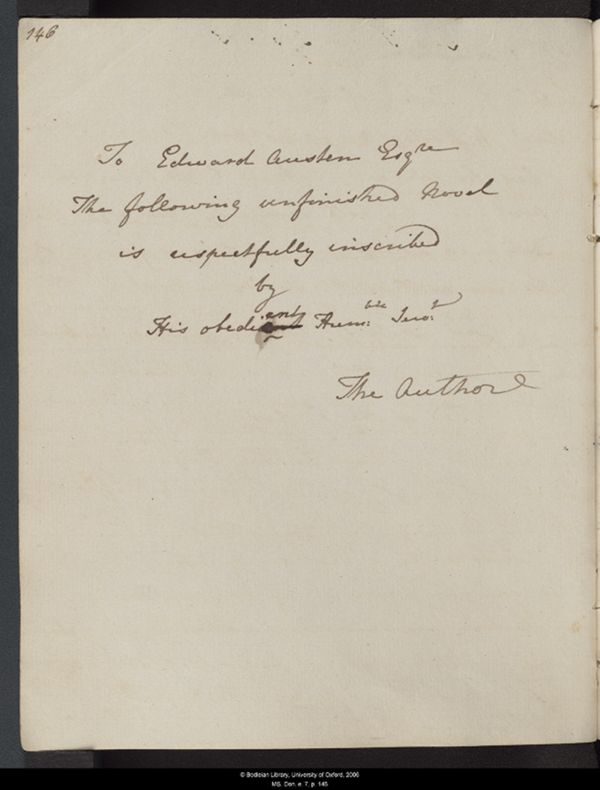 146
To Edward Austen Esqre
The following unfinished Novel
is respectfully inscribed
by
His obedient Humble Servt
The Author
© Bodleian Library, University of Oxford, 2006
MS. Don. e. 7, p. 146